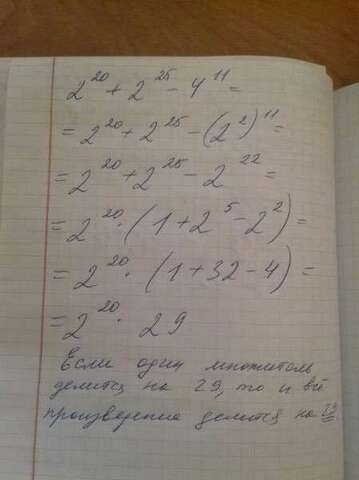 2²⁰ + 2²⁵ - 4¹¹ =
= 2²⁰ + 2²⁵ - (2²)¹¹ =
= 2²⁰ + 2²⁵ - 2²² =
= 2²⁰ · (1 + 2⁵ - 2²) =
= 2²⁰ · (1 + 32 - 4) =
= 2²⁰ · 29
Если один множитель
делится на 29, то и всё
произведение делится на 29